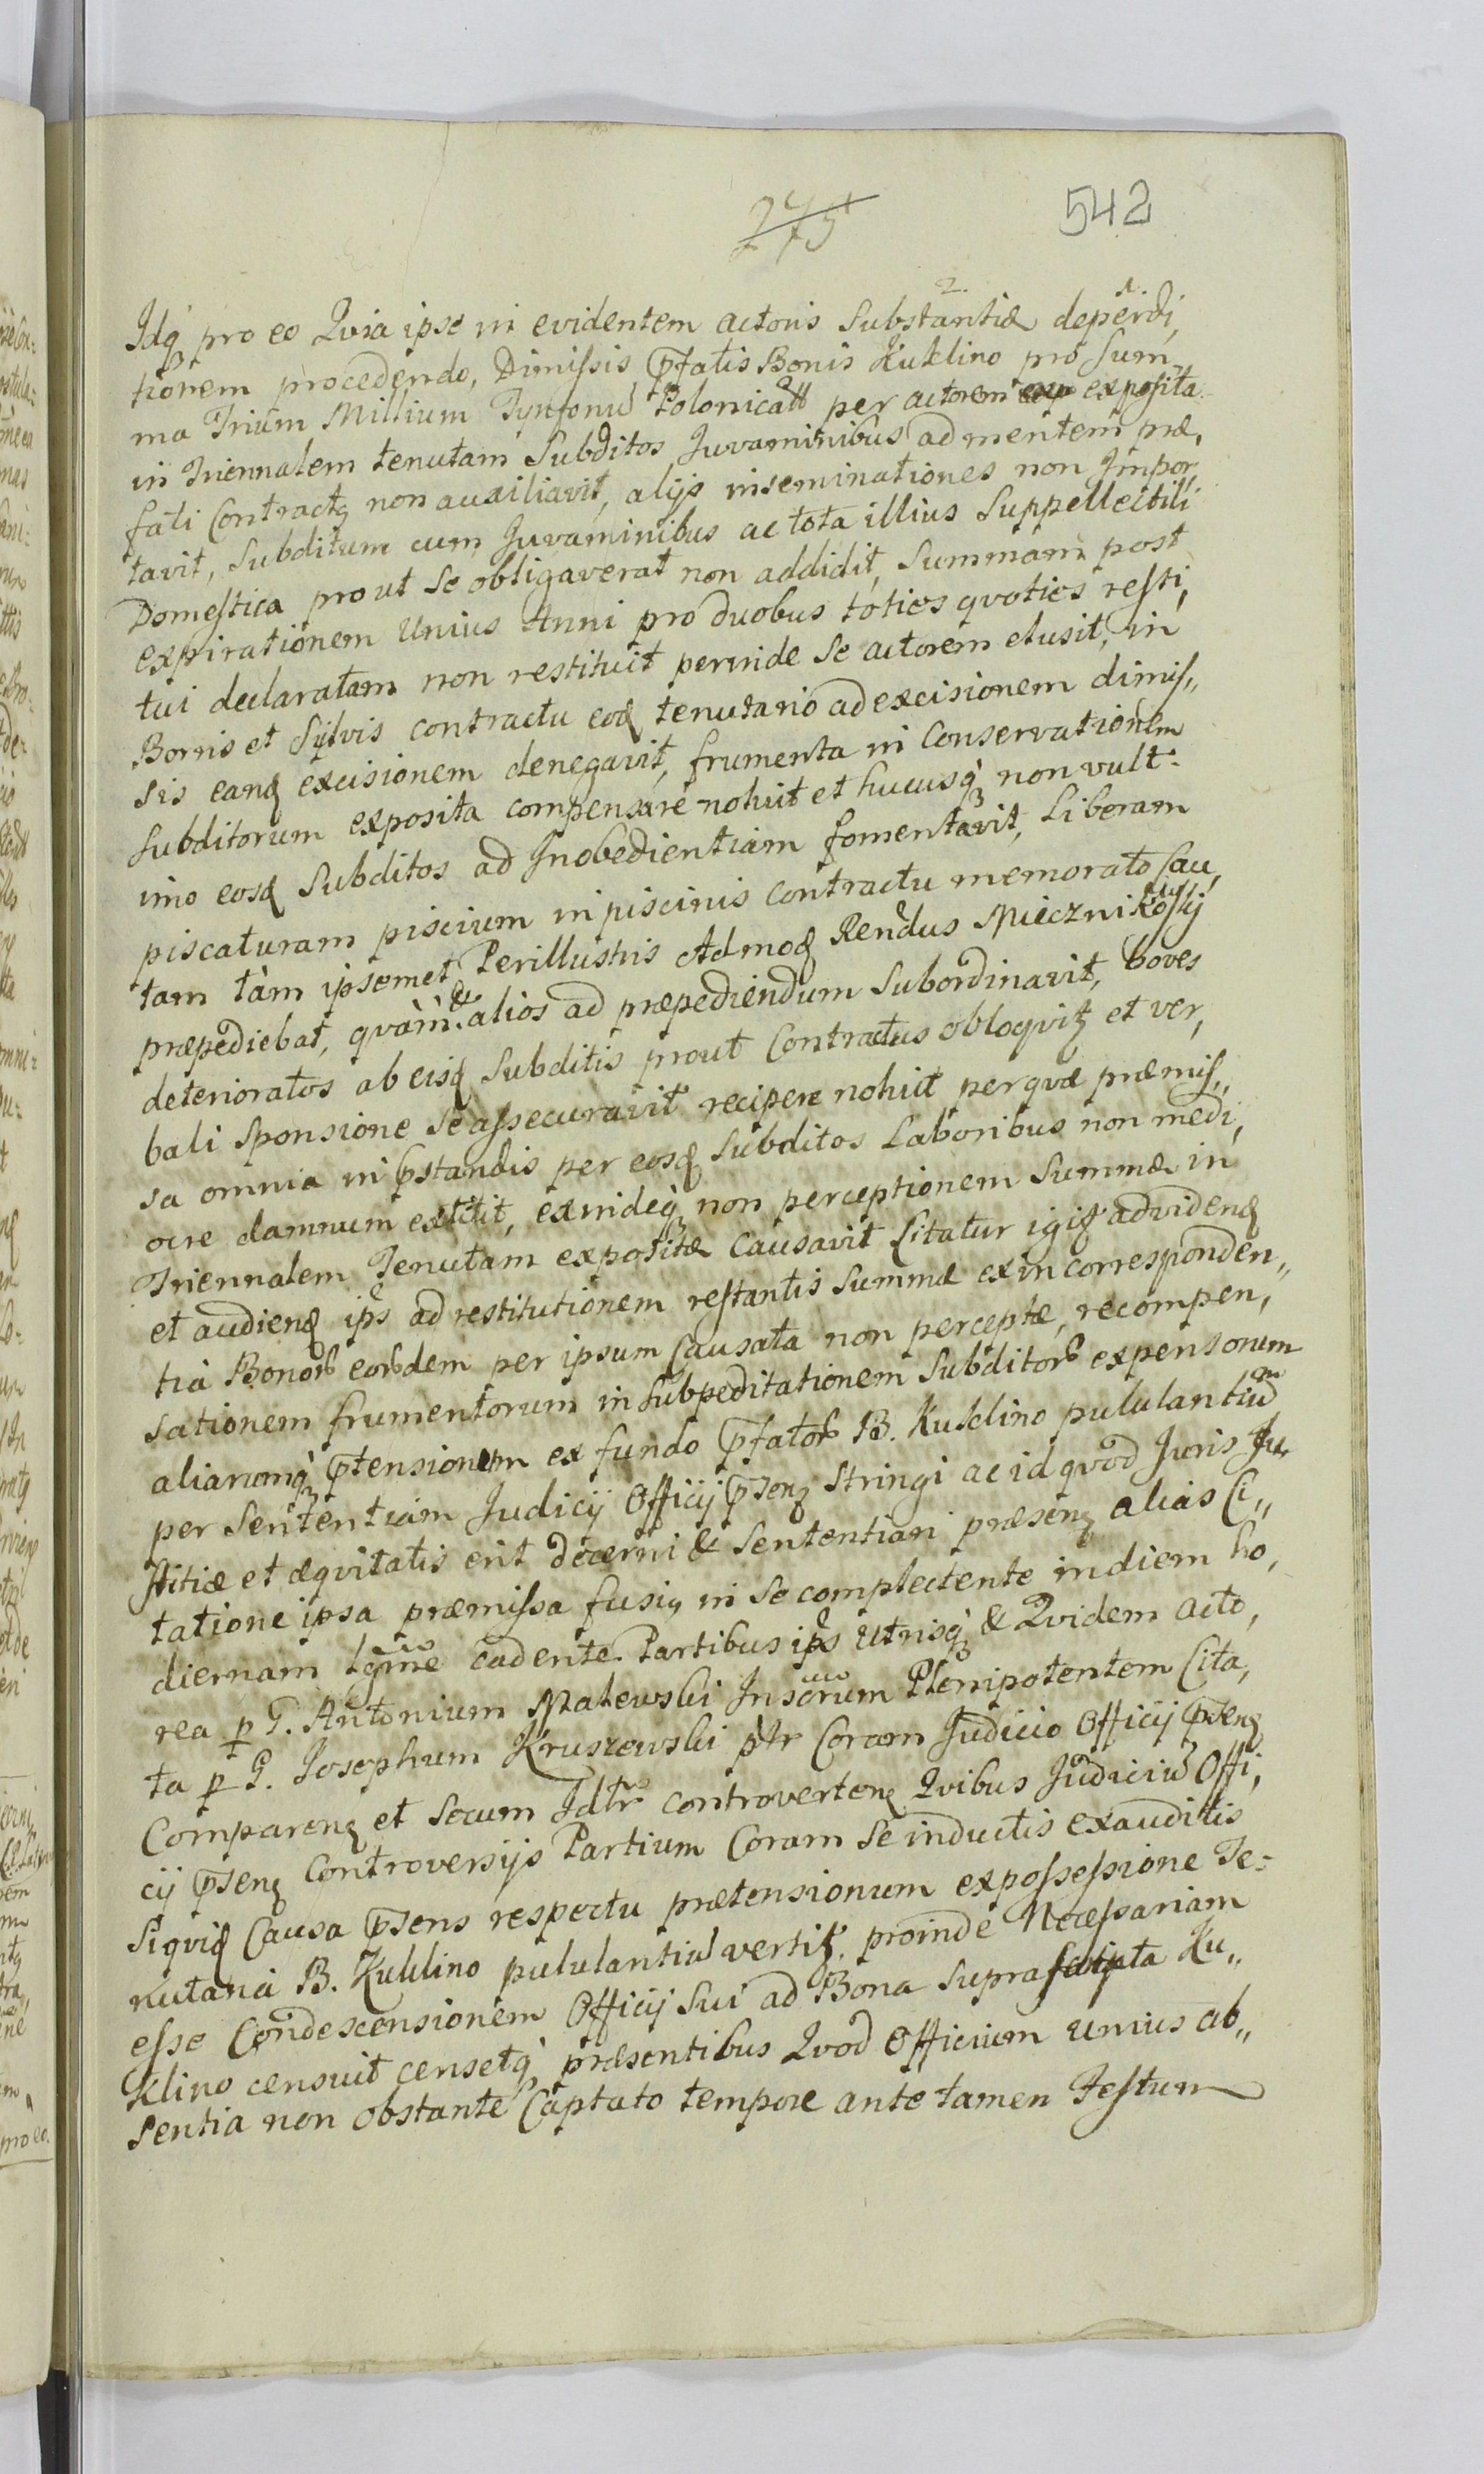 275 542
Idq, pro eo Qvia ipse in evidentem actoris Substantiæ deperdi,
tionem procedendo, Dimissis Pfatis Bonis Kuklino pro Sum
ma Trium Millium Tynfonu Polonical per actorem exposita
in Triennalem tenutam Subditos Juvaminibus ad mentem præ,
fati Contractq non auxiliavit, alijs inseminationes non Impor,
tavit, Subditum cum Juvaminibus ac tota illius Suppellectili
Domestica prout se obligaverat non addidit, Summam post
expirationem Unius Anni pro duobus toties qvoties resti,
tui declaratam non restituit perinde se actorem elusit, in
Borris et Sylvis contractu eod tenutario ad excisionem dimis,,
sis eand excisionem denegavit, frumenta in Conservationem
Subditorum exposita compensare noluit et hucusq non vult:
imo eosd Subditos ad Inobedientiam fomentavit, Liberam
piscaturam piscium in piscinis contractu memorato Cau,
tam tàm ipsemet Perillustris Admod Rendus Miecznikowski
præpediebat, qvàm & alios ad præpediendum Subordinavit, boves
deterioratos ab eisd Subditis prout Contractus obloqvit et ver,
bali Sponsione Se assecuravit recipere noluit per qvæ præmis,,
sa omnia in pstandis per eosd Subditos Laboribus non medi,
ocre damnum extitit, exindeq non perceptionem Summæ in
Triennalem Tenutam expositæ Causavit Citatur igit ad vidend
et audiend ips ad restitutionem restantis Summæ ex in corresponden,,
tia Bonor eordem per ipsum Causata non perceptæ, recompen,
sationem frumentorum in Subpeditationem Subditor expensorum
aliarumq ptensionem ex fundo pfator B. Kuklino pululantiu
per Sententiam Judicij Officij psens Stringi ac id qvod Juris Ju
stitiæ et æqvitatis erit decerni & Sententiari præsens alias Ci,,
tatione ipsa præmissa fusiq in se complectente in diem ho,
diernam lgme cadente. Partibus ips Utrisq & Qvidem acto,
rea p G. Antonium Malewski Insorum Plenipotentem Cita,
ta p G. Josephum Kruszewski ptr Coram Judicio Officij psens
Comparens et Secum Jdtr controvertens Qvibus Judiciu Offi,
cij psens Controversijs Partium Coram Se inductis exauditis
Siqvid Causa psens respectu prætensionum ex possessione Te-
nutaria B. Kuklino pululantiu vertit. proinde Necessariam
esse Condescensionem Officij Sui ad Bona Suprascripta Ku,,
klino censuit censetq præsentibus Qvod Officium unius ab,,
sentia non obstante Captato tempore ante tamen Festum